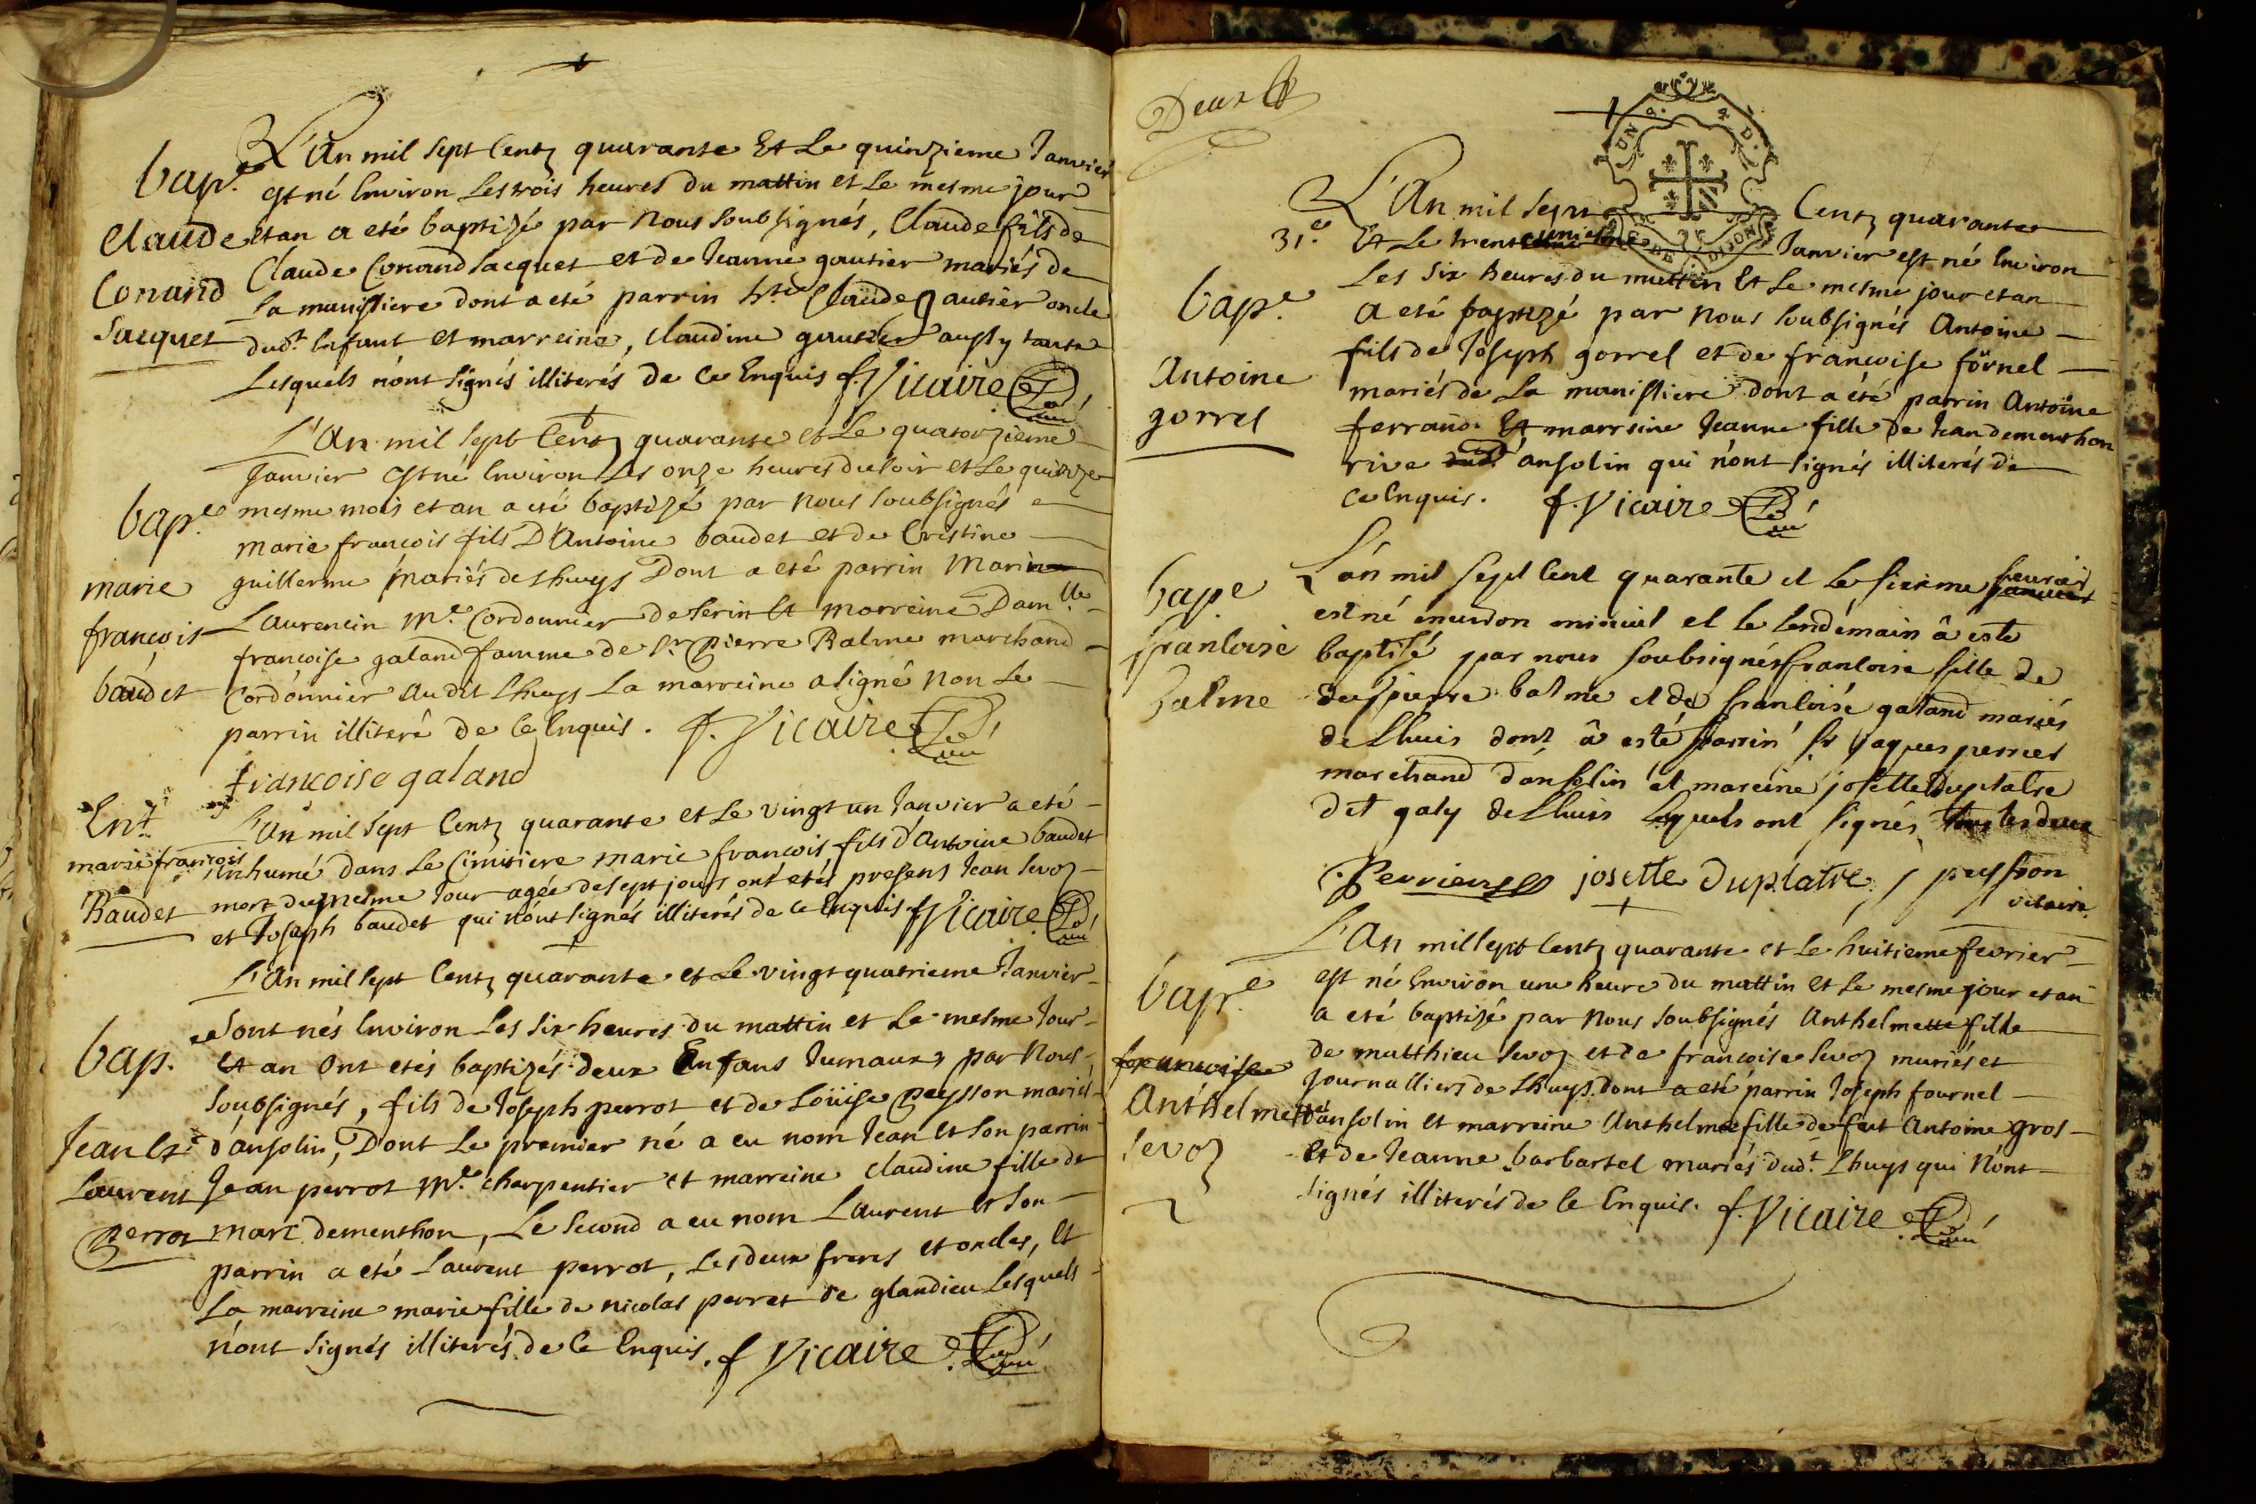 bap.e
Claude
Conand
Jacquet
L'An mil sept Centz quarante Et Le quinzieme Janvier
est né Environ Les trois heures du mattin et Le mesme jour
et an a eté baptizé par Nous soubsignés, Claude fils de
Claude Conand Jacquet et de Jeanne gautier mariés de
La manissiere dont a eté parrin h.te Claude gautier oncle
dud.t Enfant et marreine, Claudine gautier aussy tante
Lesquels n'ont signés illiterés de ce Enquis f. Vicaire Curé
bap.e
marie
françois
baudet
L'An mil sept Centz quarante et Le quatorzieme
Janvier est né Environ Les onze heures du soir et Le quinze
mesme mois et an a eté baptizé par Nous soubsignés
Marie françois fils D'Antoine baudet et de Cristine
guillerme mariés de Lhuys Dont a eté parrin Marin
Laurencin M.e Cordonnier de Serin Et Marreine Dam.lle
francoise galand famme de s.r pierre Balme marchand
Cordonnier au dit Lhuys La marreine a signé Non Le
parrin illiteré de Ce Enquis. f. Vicaire Curé
francoise galand
Ent.
marie françois
Baudet
L'An mil sept Centz quarante et Le vingt un Janvier a eté
inhumé dans Le Cimitiere marie françois fils d'Antoine baudet
mort du mesme Jour agée de sept jours ont etés presens Jean sevoz
et Joseph baudet qui n'ont signés illiterés de ce Enquis f. Vicaire Curé
bap.
Jean Et
Laurent
perrot
L'An mil sept Centz quarante et Le vingt quatrieme Janvier
sont nés Environ Les six heures du mattin et Le mesme Jour
Et an Ont etés baptizés deux Enfans Jumaux par Nous
soubsignés, fils de Joseph perrot et de Loüise peysson mariés
d'ansolin, Dont Le premier né a eu nom Jean Et son parrin
Jean perrot M.e Charpentier et marreine Claudine fille de
Marc dementhon, Le second a eu nom Laurent Et son
parrin a eté Laurent perrot, Les deux freres et oncles, Et
La marreine marie fille de nicolas perret de glandieu Lesquels
n'ont signés illiterés de Ce Enquis. f Vicaire Curé
Deux
31.e
bap.e
Antoine
gorrel
L'An mil sept Centz quarante
Et Le trente unieme Janvier est né Environ
Les six heures du mattin Et Le mesme jour et an
a eté baptizé par Nous soubsignés Antoine
fils de Joseph gorrel et de francoise förnel
mariés de La manissiere dont a été parrin Antoine
ferrand Et marreine Jeanne fille de Jean dementhon
rive dud.t ansolin qui n'ont signés illiterés de
ce Enquis. f. Vicaire Curé
bap.e
franloise
balme
L'an mil sept Cent quarante et Le sixieme feuvrier janvier
est né environ minuit et le lendemain â este
baptisé par nous soubsignés franloise fille de
pierre balme et de franloise galand mariés
de Lhuis dont â esté parrin sr jaques perrier
marchand d'ansolin et mareine josette Duplatre
dit galy de Lhuis Lequels ont signés tous les deux
Perrier josette Duplatre peysson
vicaire
bap.e
francoise
Anthelmette
sevoz
L'An mil sept Centz quarante et Le huitieme fevrier
est né Environ une heure du mattin et Le mesme jour et an
a eté baptizé par Nous soubsignés Anthelmette fille
de matthieu sevoz et de françoise sevoz mariés et
journalliers de Lhuys dont a eté parrin Joseph fournel
d'ansolin et marreine Anthelme fille de feut Antoine gros
Et de Jeanne barbarsel mariés dud.t Lhuys qui N'ont
signés illiterés de Ce Enquis. f. Vicaire Curé